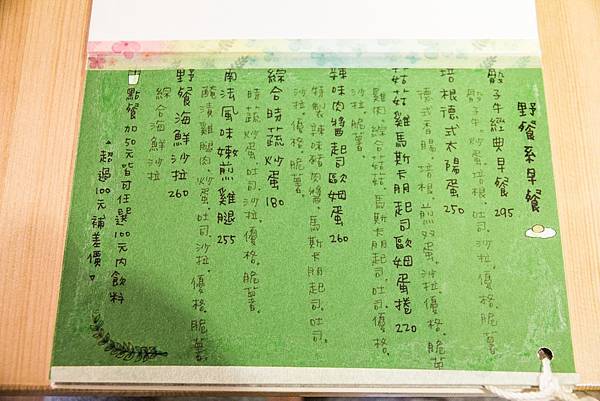 野餐系早餐
骰子牛經典早餐 295
骰子牛.炒蛋.培根.吐司.沙拉.優格.脆薯.
培根德式太陽蛋 250
德式香腸.培根.煎双蛋.沙拉.優格.脆薯
菇菇雞馬斯卡朋起司歐姆蛋捲 220
雞肉.綜合菇菇.馬斯卡朋起司.吐司.優格.
沙拉.脆薯
辣味肉醬起司歐姆蛋 260
特製辣味豬肉醬.馬斯卡朋起司.吐司.
沙拉.優格.脆薯.
綜合時蔬炒蛋 180
時蔬炒蛋.吐司.沙拉.優格.脆薯.
南法風味嫩煎雞腿 255
醃漬雞腿肉.炒蛋.吐司.沙拉.優格.脆薯.
野餐海鮮沙拉 260
綜合海鮮沙拉
點餐加50元皆可任選100元內飲料
▲超過100元補差價。